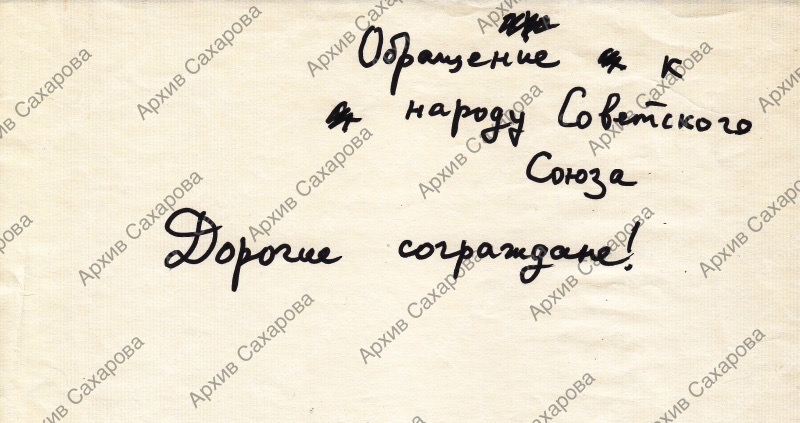 Обращение к
народу Советского
Союза
Дорогие сограждане!
Архив Сахарова